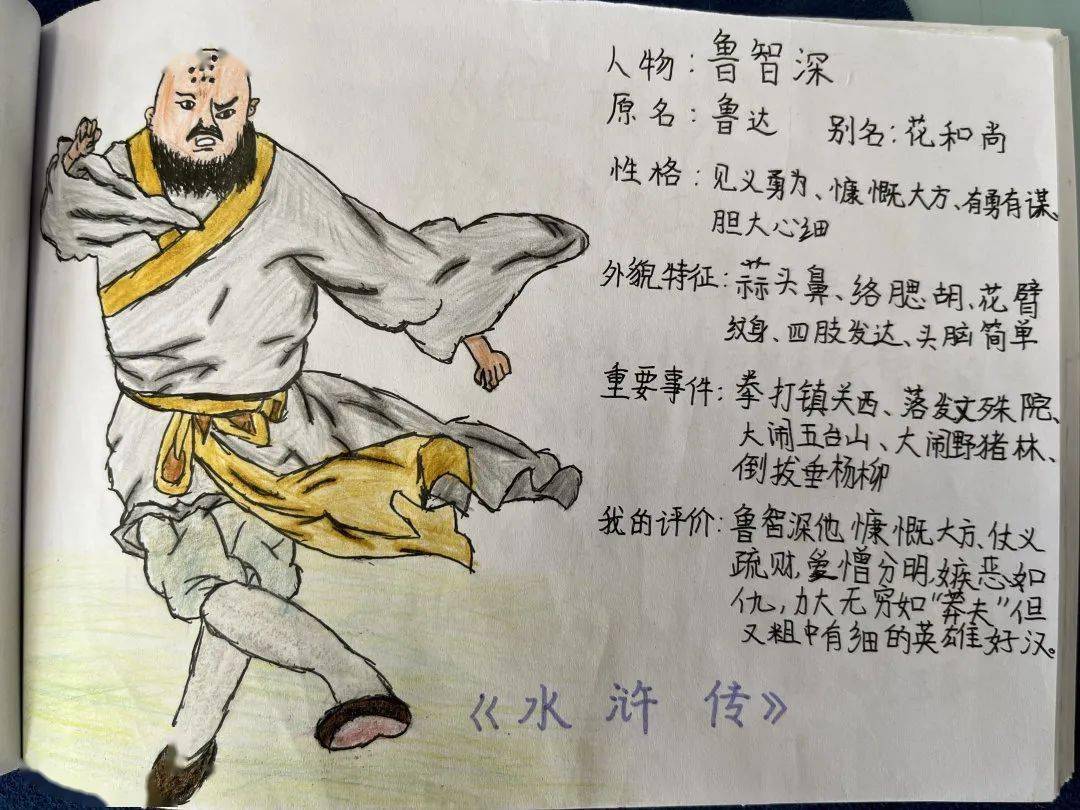 人物：鲁智深
原名：鲁达 别名：花和尚
性格：见义勇为、慷慨大方、有勇有谋、
胆大心细
外貌特征：蒜头鼻、络腮胡、花臂
纹身、四肢发达、头脑简单
重要事件：拳打镇关西、落发文殊院、
大闹五台山、大闹野猪林、
倒拔垂杨柳
我的评价：鲁智深他慷慨大方、仗义
疏财，爱憎分明，嫉恶如
仇，力大无穷如“莽夫”但
又粗中有细的英雄好汉。
《水浒传》